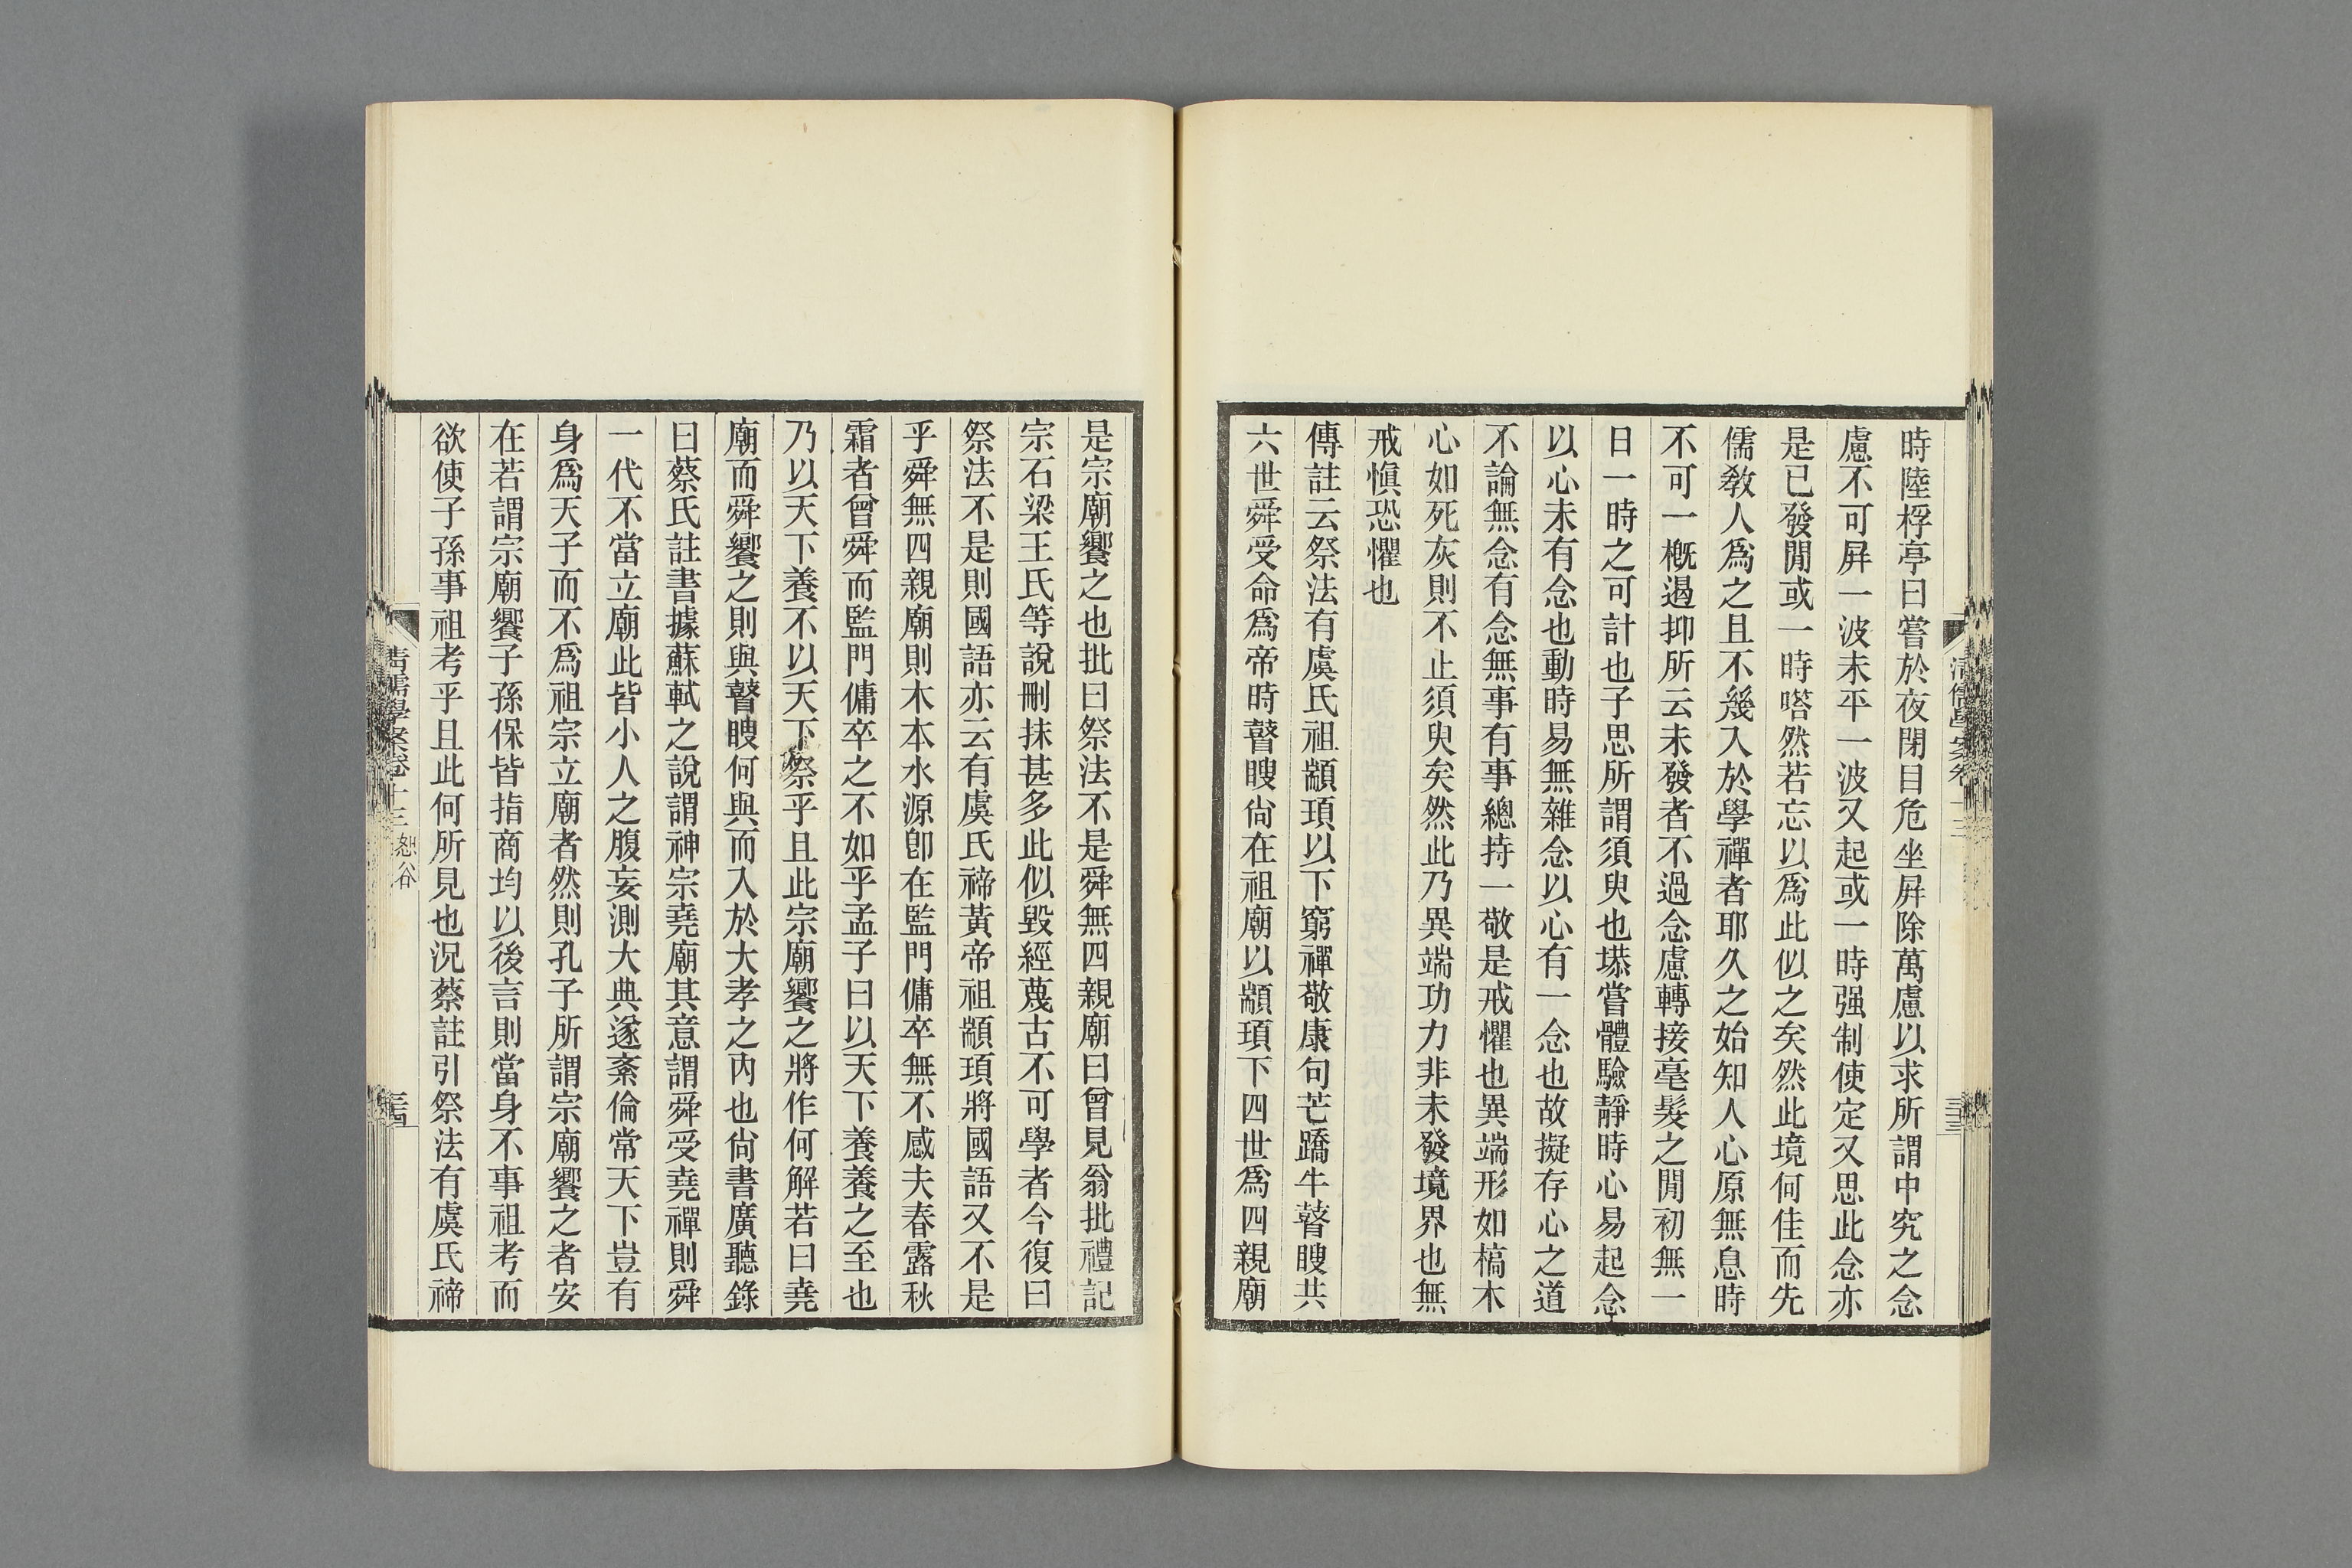 時陸桴亭曰嘗於夜閉目危坐屏除萬慮以求所謂中究之念
慮不可屏一波未平一波又起或一時强制使定又思此念亦
是已發閒或一時嗒然若忘以爲此似之矣然此境何佳而先
儒敎人爲之且不幾入於學禪者耶久之始知人心原無息時
不可一槪遏抑所云未發者不過念慮轉接毫髮之閒初無一
日一時之可計也子思所謂須臾也塨嘗體驗靜時心易起念
以心未有念也動時易無雜念以心有一念也故擬存心之道
不論無念有念無事有事總持一敬是戒懼也異端形如槁木
心如死灰則不止須臾矣然此乃異端功力非未發境界也無
戒愼恐懼也
傳註云祭法有虞氏祖顓頊以下窮禪敬康句芒蹻牛瞽瞍共
六世舜受命爲帝時瞽瞍尙在祖廟以顓頊下四世爲四親廟
清儒學案卷十三
三十三
是宗廟饗之也批曰祭法不是舜無四親廟曰曾見翁批禮記
宗石梁王氏等說刪抹甚多此似毀經蔑古不可學者今復曰
祭法不是則國語亦云有虞氏禘黃帝祖顓頊將國語又不是
乎舜無四親廟則木本水源卽在監門傭卒無不感夫春露秋
霜者曾舜而監門傭卒之不如乎孟子曰以天下養養之至也
乃以天下養不以天下祭乎且此宗廟饗之將作何解若曰堯
廟而舜饗之則與瞽瞍何與而入於大孝之內也尙書廣聽錄
曰蔡氏註書據蘇軾之說謂神宗堯廟其意謂舜受堯禪則舜
一代不當立廟此皆小人之腹妄測大典遂紊倫常天下豈有
身爲天子而不爲祖宗立廟者然則孔子所謂宗廟饗之者安
在若謂宗廟饗子孫保皆指商均以後言則當身不事祖考而
欲使子孫事祖考乎且此何所見也況蔡註引祭法有虞氏禘
清儒學案卷十三 恕谷
三十四